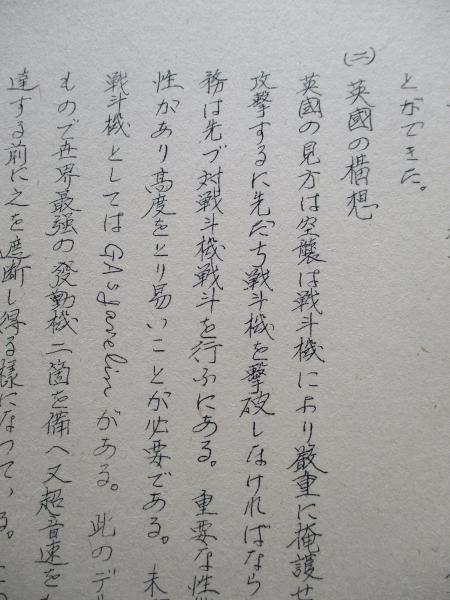 とができた。
(二) 英國の構想
英國の見方は空襲は戦斗機により厳重に掩護せ
攻撃するに先だち戦斗機を撃破しなければなら
務は先づ対戦斗機戦斗を行ふにある。重要な性能
性があり高度をとり易いことが必要である。未
戦斗機としては GAsyarelin がある。此のデル
もので世界最強の発動機二箇を備へ又超音速を
達する前に之を遮断し得る様になつてゐる。